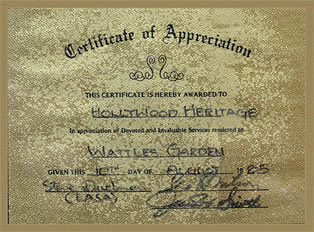 Certificate of Appreciation
THIS CERTIFICATE IS HEREBY AWARDED TO
HOLLYWOOD HERITAGE
In appreciation of Devoted and Invaluable Services rendered to
WATTLES GARDEN
GIVEN THIS DAY OF AUGUST 1985
(LASA)